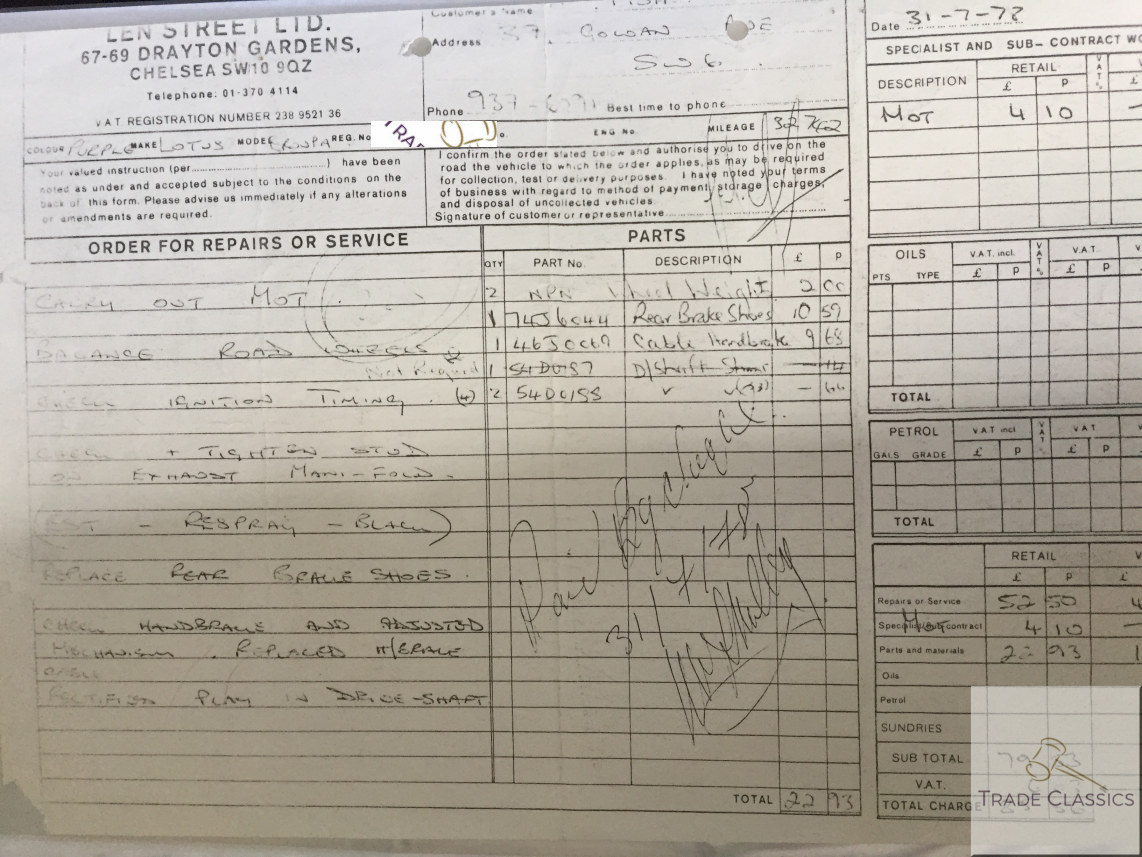 LEN STREET LTD.
67-69 DRAYTON GARDENS,
CHELSEA SW10 9QZ
Telephone: 01-370 4114
V.A.T. REGISTRATION NUMBER 238 9521 36
Customer's Name
Address 37, GOWAN AVE
SW6.
Phone 937- Best time to phone
COLOUR PURPLE MAKE LOTUS MODEL EUROPA REG. No. ENG No. MILEAGE
Your valued instruction (per ) have been
noted as under and accepted subject to the conditions on the
back of this form. Please advise us immediately if any alterations
or amendments are required.
I confirm the order stated below and authorise you to drive on the
road the vehicle to which the order applies, as may be required
for collection, test or delivery purposes. I have noted your terms
of business with regard to method of payment, storage charges,
and disposal of uncollected vehicles.
Signature of customer or representative
ORDER FOR REPAIRS OR SERVICE
CARRY OUT MOT.
BALANCE ROAD WHEELS
Not Required
CHECK IGNITION TIMING. (4)
CHECK + TIGHTEN STUD
ON EXHAUST MANI-FOLD.
(EST - RESPRAY - BLACK)
REPLACE REAR BRAKE SHOES.
CHECK HANDBRAKE AND ADJUSTED
MECHANISM. REPLACED H/BRAKE
CABLE
RECTIFIED PLAY IN DRIVE-SHAFT
PARTS
QTY PART No. DESCRIPTION £ P
2 NPN Wheel Weight 2 00
1 74J6044 Rear Brake Shoes 10 59
1 Cable Handbrake 9 68
1 D/Shaft
2
TOTAL 22 93
Date 31-7-78
SPECIALIST AND SUB-CONTRACT WO
DESCRIPTION RETAIL V A T %
£ P
MOT 4 10 —
OILS V.A.T. incl. V A T % V.A.T.
PTS TYPE £ P £ P
TOTAL
PETROL V.A.T. incl V A T % V.A.T.
GALS GRADE £ P £ P
TOTAL
RETAIL
£ P £
Repairs or Service 52 50
MOT 4 10 —
Parts and materials 22 93
Oils
Petrol
SUNDRIES
SUB TOTAL
V.A.T.
TOTAL CHARGE
TRADE CLASSICS